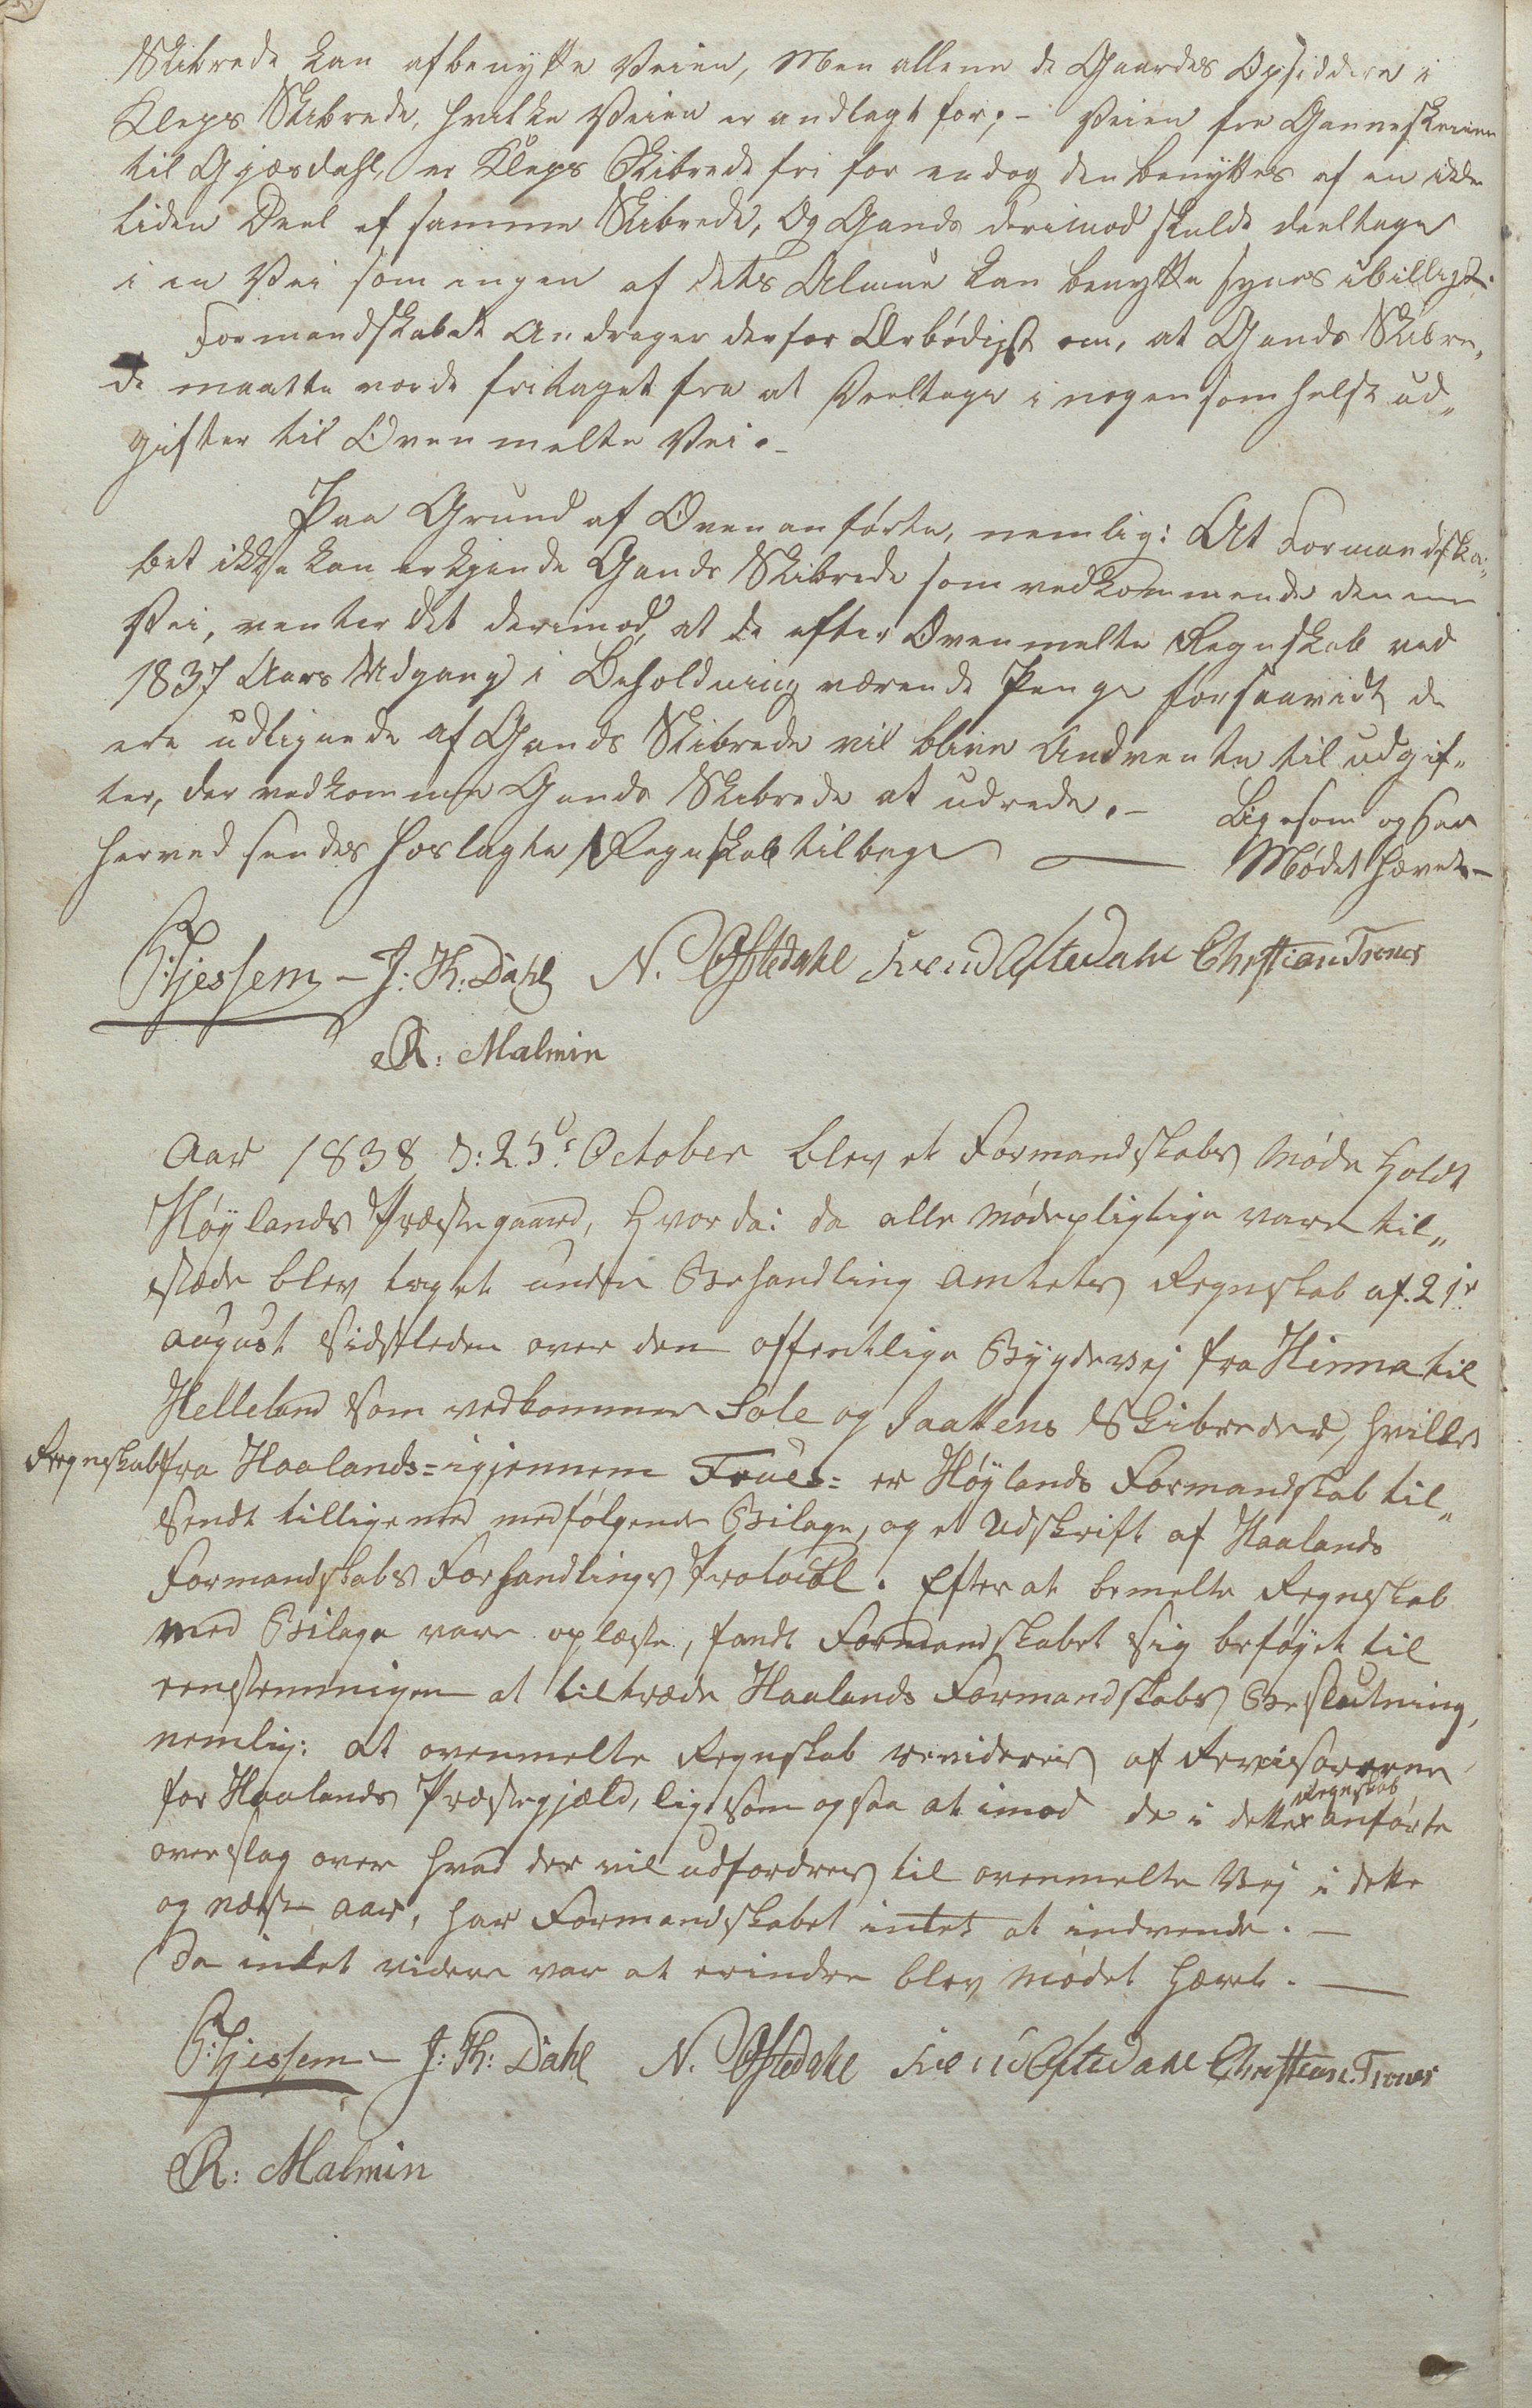 Skibrede kan afbenytte Veien, Men allene de Gaardes Opsiddere i
Kleps Skibrede, hvilke Veien er andlagt for; - Veien fra Ganneskreiren
til Gjæsdahl, er Kleps Skibrede fri for endog den benyttes af en ikke
liden Deel af samme Skibrede, Og Gands derimod skulde deeltage
i en Vei som ingen af dets Almue kan benytte synes ubilligt.
Formandskabet Andrager derfor Ærbødigst om, at Gands Skibre„
de maatte vorde fritaget fra at Deeltage i nogensomhelst ud„
gifter til Ovenmelte Vei. -
Paa Grund af Ovenanførte, nemlig: At Formandska„
bet ikke kan erkjende Gands Skibrede som vedkommende denne
Vei, venter det derimod, at de efter Ovenmelte Regnskab ved
1837 Aars Udgang i Beholdning værende Penge forsaavidt de
ere udlignede af Gands Skibrede vil blive Andvente til udgif„
ter, der vedkomme Gands Skibrede at udrede. - Ligesom ogsaa
herved sendes hoslagte Regnskab tilbage — Mødet hævet -
Tjessem - J: Th: Dahl N. Oftedahl Svend Oftedahl Christian Trones
R: Malmin
Aar 1838 D: 25de October blev et Formandskabs Møde holdt
Høylands Præstegaard, hvor da: da alle mødepligtige vare til„
stæde blev taget under Behandling Amtets Regnskab af 21de
august sidstleden over den offentlige Bygdevej fra Hinna til
Helleland som vedkommer Sole og Jaattens Skibreder, hvilket
Regnskab fra Haalands= igjennem Frues= er Høylands Formandskab til„
sendt tilligemed medfølgende Bilage, og et Udskrift af Haalands
Formandskabs Forhandlings Protocol. Efter at bemelte Regnskab
med Bilage vare oplæste, fandt Formandskabet sig beføyet til
eenstemmigen at tiltræde Haalands Formandskabs Beslutning,
nemlig: at ovenmelte Regnskab revideres af Revisorerne
for Haalands Præstegjæld, ligesom ogsaa at imod de i dette Regnskab anførte
overslag over hvad der vil udfordres til ovenmelte Vej i dette
og næste Aar, har Formandskabet intet at indvende. -
Da intet videre var at erindre blev mødet hævet. —
Tjessem - J: Th: Dahl N. Oftedahl Svend Oftedahl Christian Trones
R: Malmin